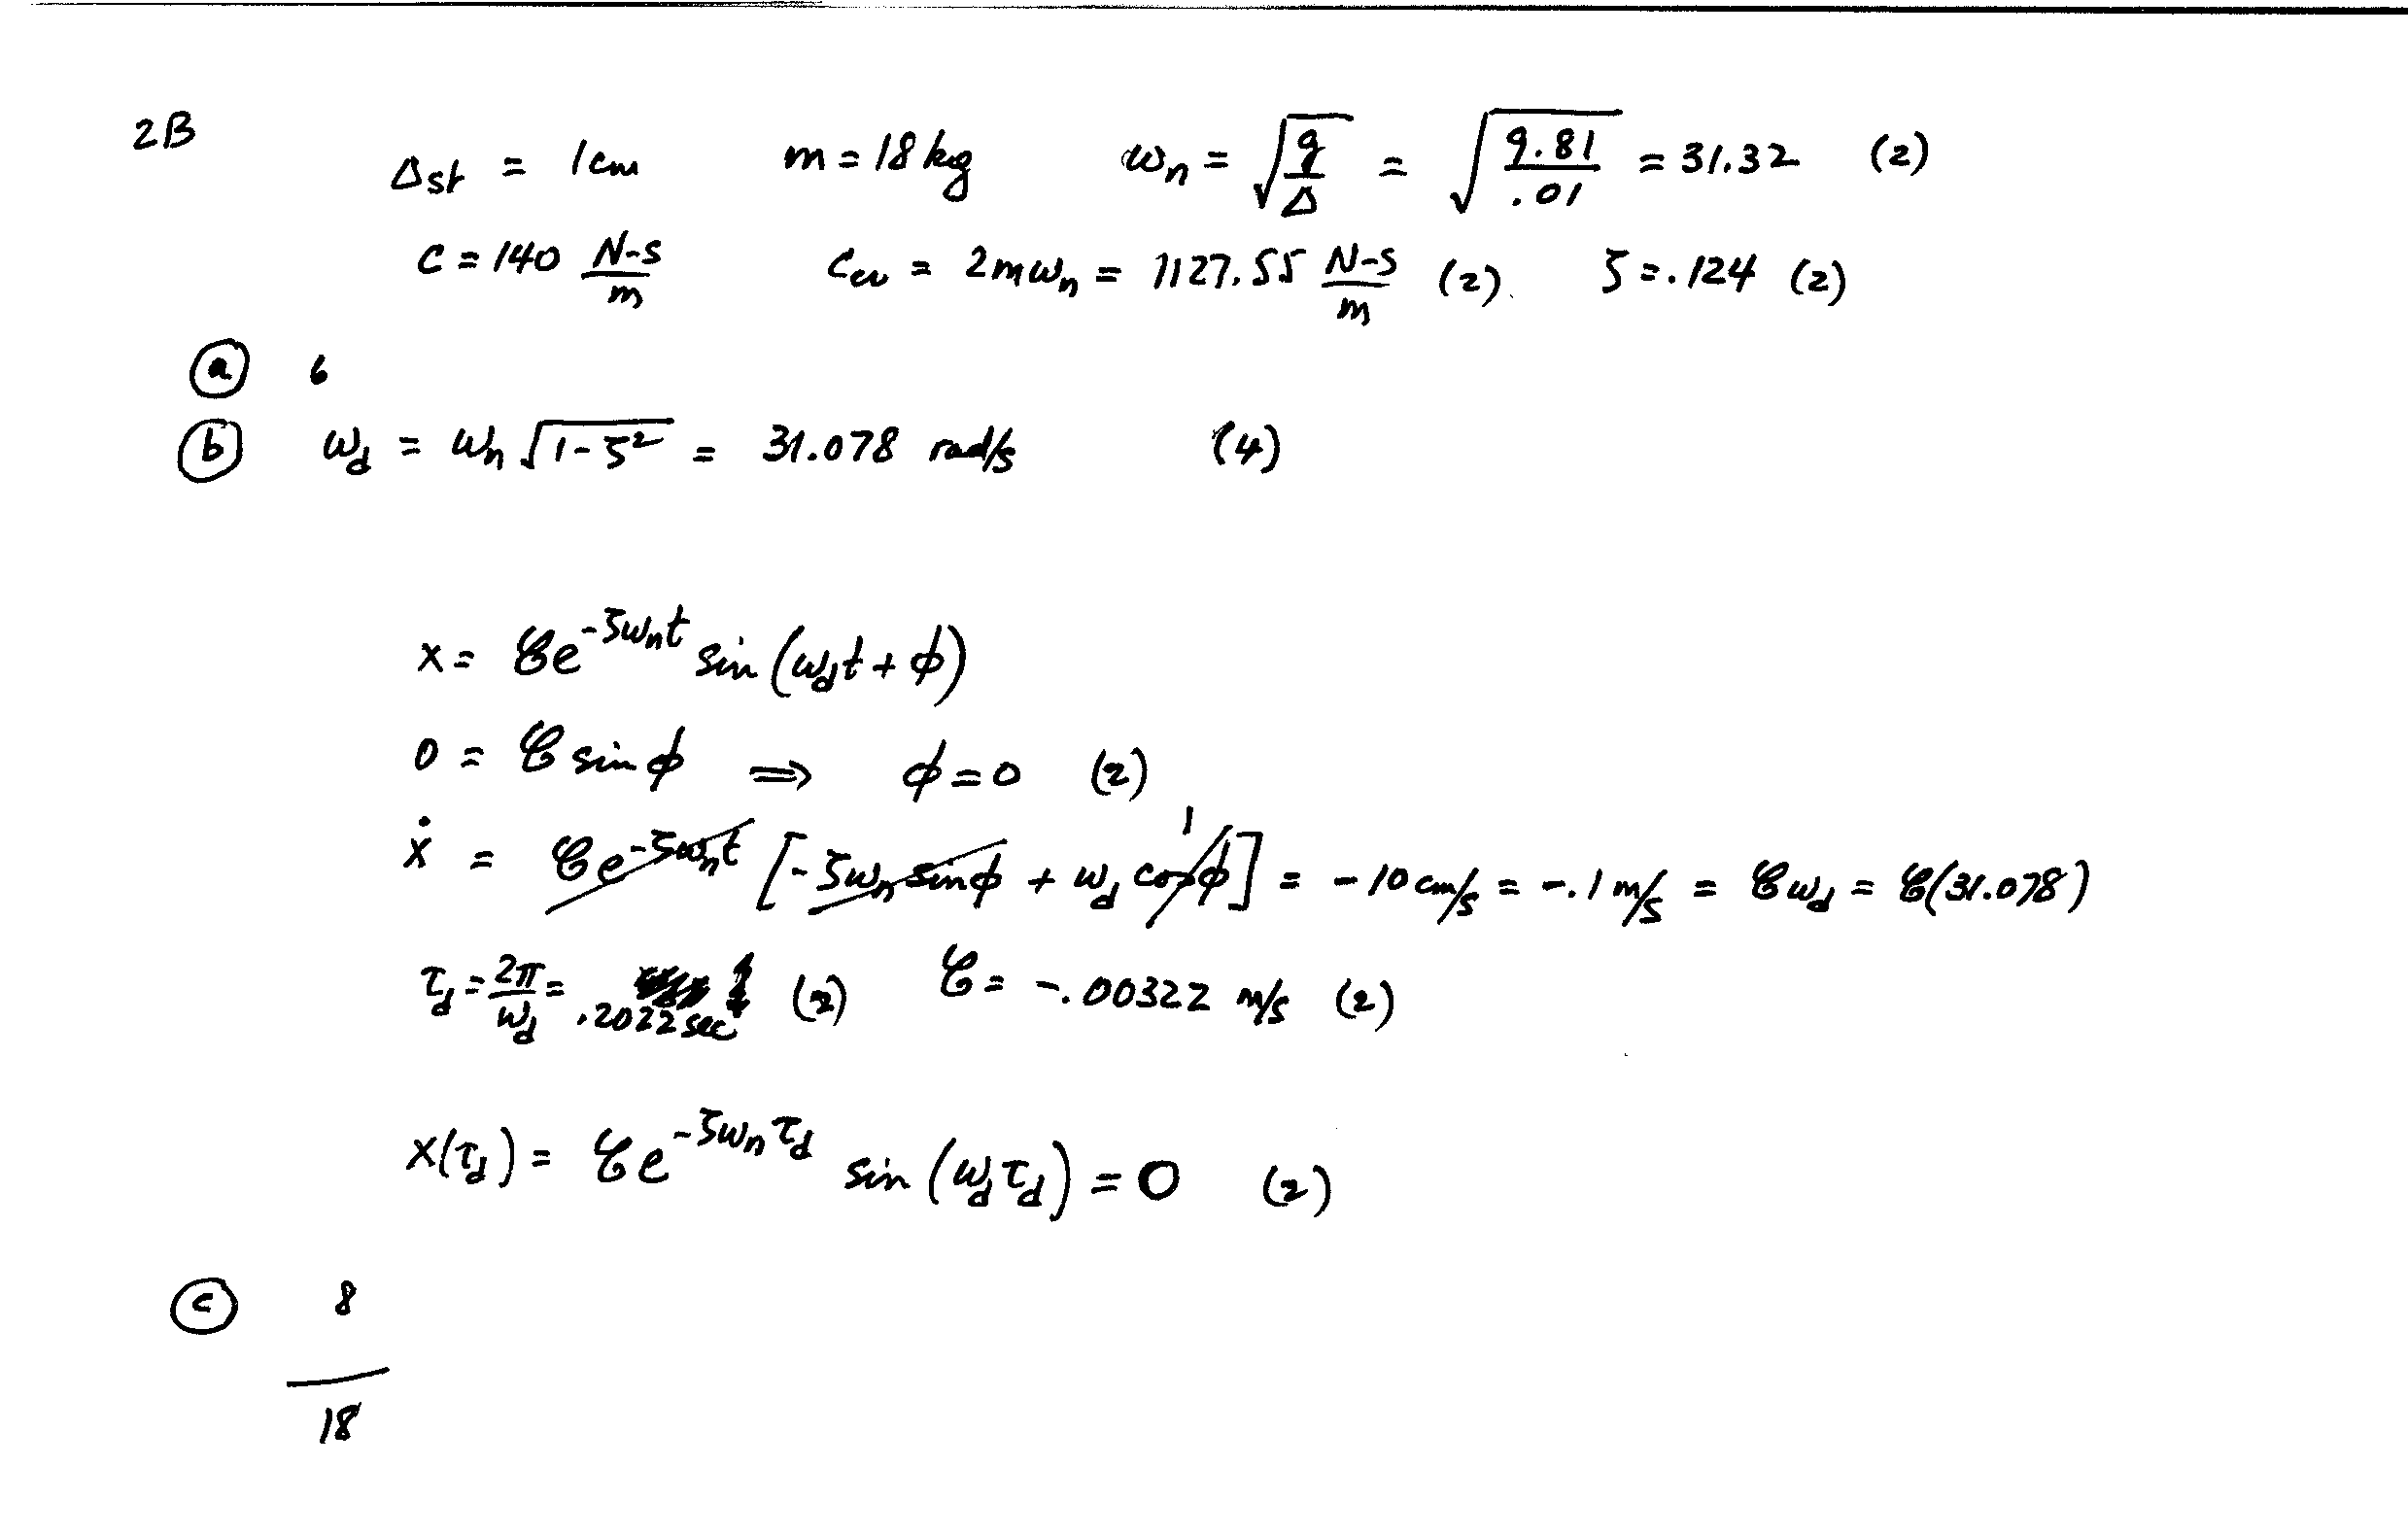 2B
Δst = 1cm m = 18 kg ωn = √(g/Δ) = √(9.81/.01) = 31.32 (2)
C = 140 N-s/m Ccr = 2mωn = 1127.55 N-s/m (2) ζ = .124 (2)
(a) 6
(b) ωd = ωn √(1-ζ²) = 31.078 rad/s (4)
x = 𝒞e^(-ζωnt) sin(ωdt + ϕ)
0 = 𝒞 sin ϕ ⟹ ϕ = 0 (2)
ẋ = 𝒞e^(-ζωnt) [-ζωn sinϕ + ωd cosϕ] 1 = -10 cm/s = -.1 m/s = 𝒞ωd = 𝒞(31.078)
τd = 2π/ωd = .2022 sec (2) 𝒞 = -.00322 m/s (2)
x(τd) = 𝒞e^(-ζωnτd) sin(ωdτd) = 0 (2)
(c) 8
18